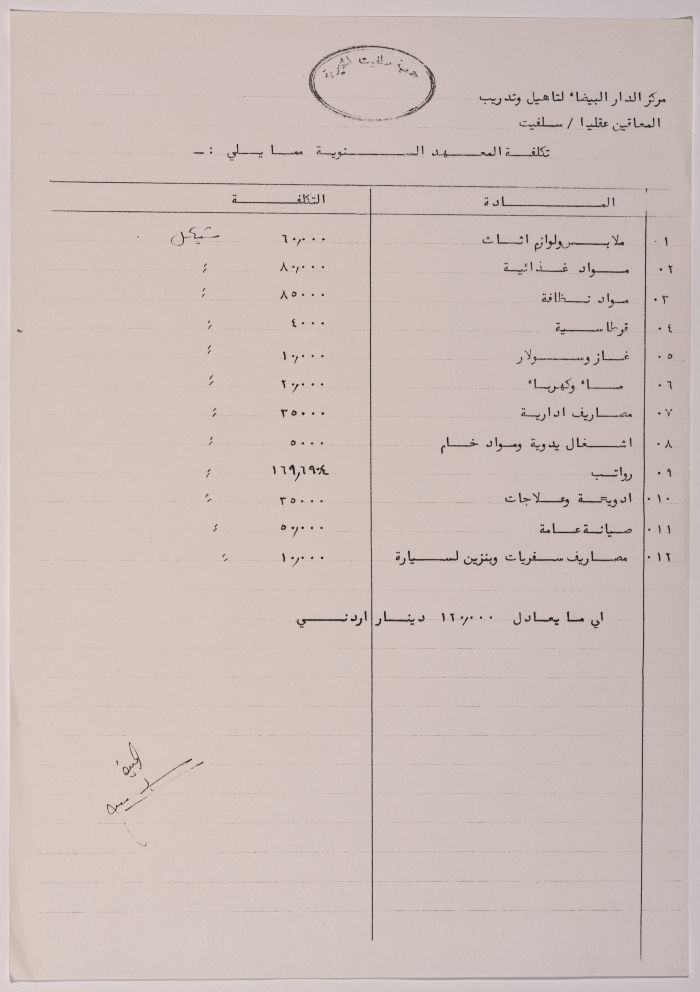 جمعية سلفيت الخيرية
مركز الدار البيضاء لتاهيل وتدريب
المعاقين عقليا / سلفيت
تكلفة المعهد السنوية مما يلي :ـ
المادة التكلفة
٠١ ملابس ولوازم اثاث ٦٠,٠٠٠ شيكل
٠٢ مواد غذائية ٨٠,٠٠٠ ؛
٠٣ مواد نظافة ٨٥٠٠٠ ؛
٠٤ قرطاسية ٤٠٠٠ ؛
٠٥ غاز وسولار ١٠,٠٠٠ ؛
٠٦ ماء وكهرباء ٢٠,٠٠٠ ؛
٠٧ مصاريف ادارية ٣٥٠٠٠ ؛
٠٨ اشغال يدوية ومواد خام ٥٠٠٠ ؛
٠٩ رواتب ؛
٠١٠ ادوية وعلاجات ٣٥٠٠٠ ؛
٠١١ صيانة عامة ٥٠,٠٠٠ ؛
٠١٢ مصاريف سفريات وبنزين لسيارة ١٠,٠٠٠ ؛
اي ما يعادل ١٢٠,٠٠٠ دينار اردني